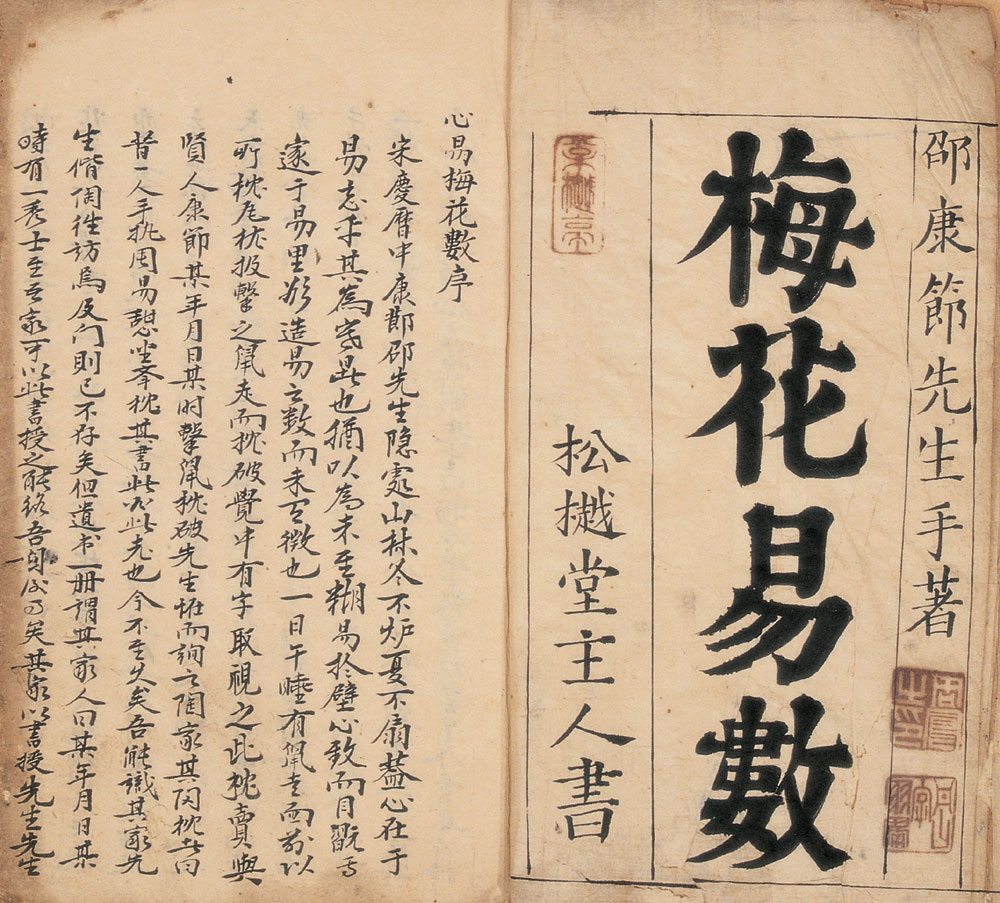 邵康節先生手著
梅花易數
松樾堂主人書
心易梅花數序
宋慶曆中康節邵先生隱處山林冬不炉夏不扇蓋心在于
易忘乎其為寒暑也猶以為未至糊易於壁心致而目翫焉
邃于易里欲造易之数而未有徵也一日午睡有鼠走而前以
所枕瓦枕投擊之鼠走而枕破覺中有字取視之此枕賣與
賢人康節某年月日某时擊鼠枕破先生怪而詢之陶家其陶枕者曰
昔一人手执周易憩坐举枕其書此必此老也今不至久矣吾能識其家先
生偕陶往訪焉及门則已不存矣但遺书一册謂其家人曰某年月日某
時有一秀士至吾家可以此書授之能終吾身後事矣其家以書授先生先生